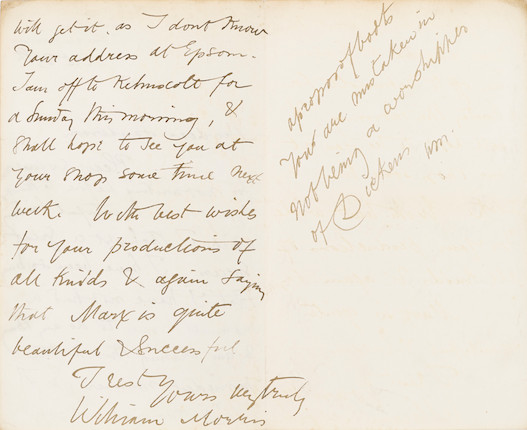 will get it, as I dont know
Your address at Epsom.
I am off to Kelmscott for
a Sunday this morning, &
shall hope to see you at
your shop some time next
week. With best wishes
for your productions of
all kinds & again saying
that Marx is quite
beautiful & successful
I rest Yours very truly
William Morris
apropos of books
You are mistaken in
not being a worshipper
of Dickens WM.